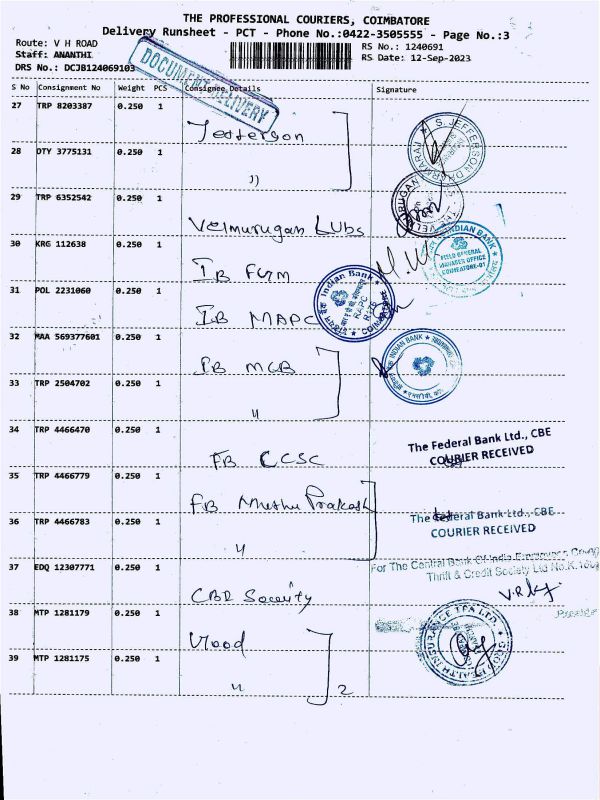 THE PROFESSIONAL COURIERS, COIMBATORE
Delivery Runsheet - PCT - Phone No.:0422-3505555 - Page No.:3
Route: V H ROAD
Staff: ANANTHI
DRS No.: DCJB124069103
RS No.: 1240691
RS Date: 12-Sep-2023
DOCUMENT DELIVERY
S No Consignment No Weight PCS Consignee Details Signature
27 TRP 8203387 0.250 1
Jefferson
S. JEFFERSON
28 DTY 3775131 0.250 1
11
29 TRP 6352542 0.250 1
Velmurugan Lubs
30 KRG 112638 0.250 1
IB FGM
INDIAN BANK
FIELD GENERAL
MANAGER OFFICE
COIMBATORE-01
31 POL 2231060 0.250 1
IB MAPC
Indian Bank
RAPC
32 MAA 569377601 0.250 1
IB MCB
INDIAN BANK
33 TRP 2504702 0.250 1
11
34 TRP 4466470 0.250 1
FB CCSC
The Federal Bank Ltd., CBE
COURIER RECEIVED
35 TRP 4466779 0.250 1
FB Muthu Prakash
The Federal Bank Ltd., CBE
COURIER RECEIVED
36 TRP 4466783 0.250 1
11
37 EDQ 12307771 0.250 1
CBD Society
For The Central Bank Of India Employees
Thrift & Credit Society Ltd No.K.
38 MTP 1281179 0.250 1
HEALTH INSURANCE TPA LTD.
39 MTP 1281175 0.250 1
11
2